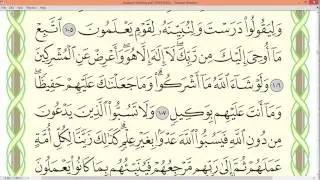 وَلِيَقُولُوا۟ دَرَسْتَ وَلِنُبَيِّنَهُۥ لِقَوْمٍ يَعْلَمُونَ ١٠٥ ٱتَّبِعْ
مَآ أُوحِىَ إِلَيْكَ مِن رَّبِّكَ ۖ لَآ إِلَٰهَ إِلَّا هُوَ ۖ وَأَعْرِضْ عَنِ ٱلْمُشْرِكِينَ
١٠٦ وَلَوْ شَآءَ ٱللَّهُ مَآ أَشْرَكُوا۟ ۗ وَمَا جَعَلْنَٰكَ عَلَيْهِمْ حَفِيظًا ۖ
وَمَآ أَنتَ عَلَيْهِم بِوَكِيلٍ ١٠٧ وَلَا تَسُبُّوا۟ ٱلَّذِينَ يَدْعُونَ
مِن دُونِ ٱللَّهِ فَيَسُبُّوا۟ ٱللَّهَ عَدْوًۢا بِغَيْرِ عِلْمٍ ۗ كَذَٰلِكَ زَيَّنَّا لِكُلِّ أُمَّةٍ
عَمَلَهُمْ ثُمَّ إِلَىٰ رَبِّهِم مَّرْجِعُهُمْ فَيُنَبِّئُهُم بِمَا كَانُوا۟ يَعْمَلُونَ